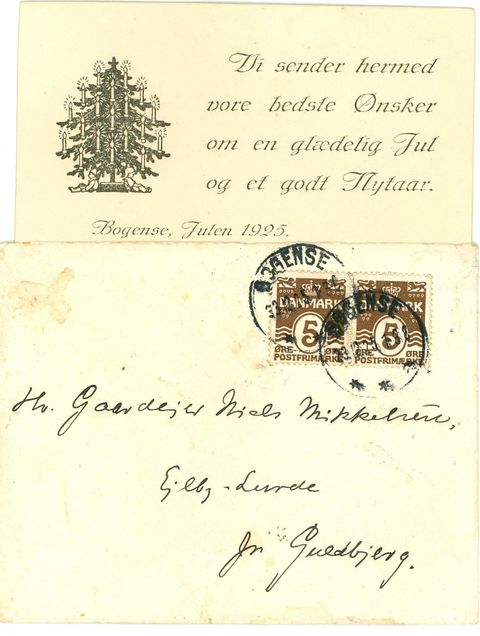 Vi sender hermed
vore bedste Ønsker
om en glædelig Jul
og et godt Nytaar.
Bogense, Julen 1925.
BOGENSE
BOGENSE
DANMARK
DANMARK
5 5
ØRE ØRE
POSTFRIMÆRKE
ØRE ØRE
POSTFRIMÆRKE
Hr. Gaardejer Niels Mikkelsen,
Ejlby-Lunde
pr Guldbjerg.